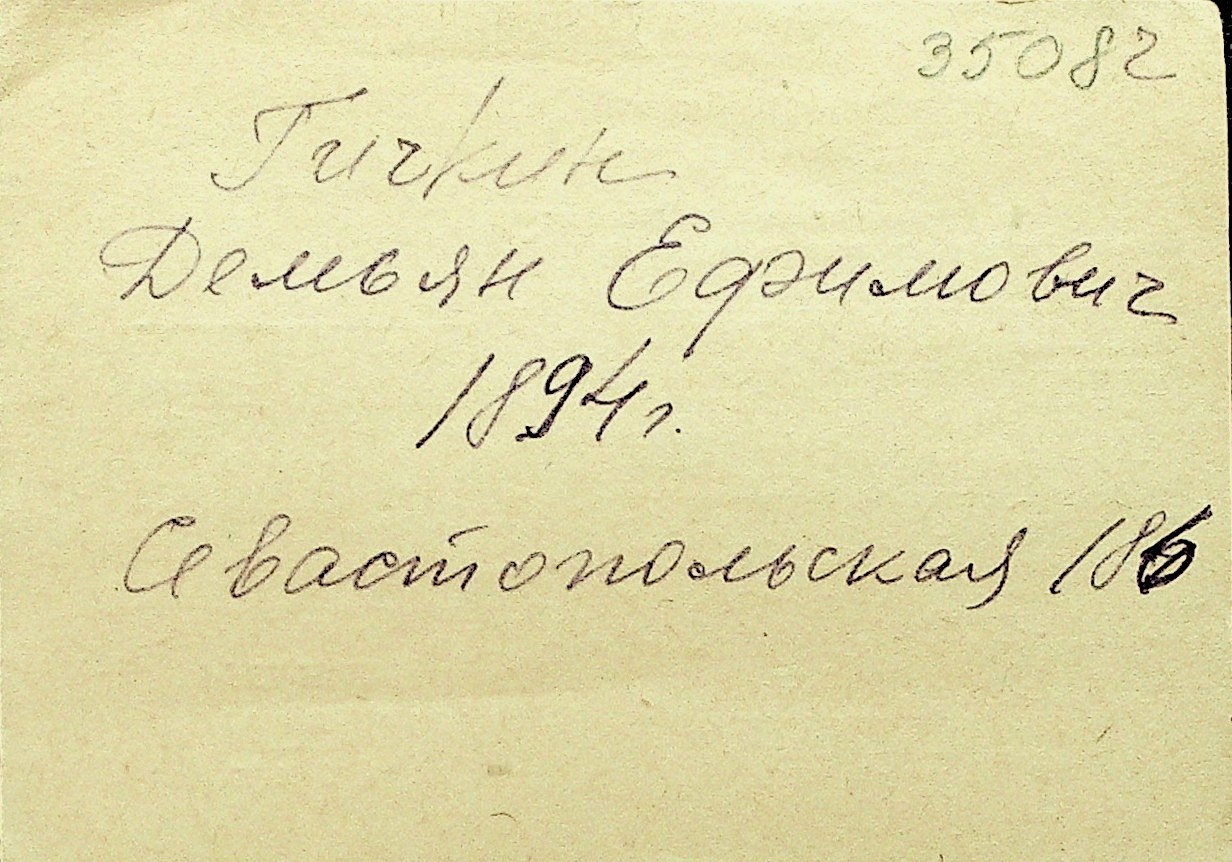 35082
Гичкин
Демьян Ефимович
1894 г.
Севастопольская 186